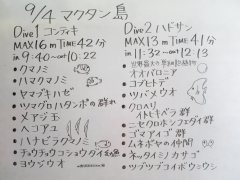 9/4 マクタン島
Dive1 コンティキ
MAX16m TIME42分
in 9:40〜out10:22
・クマノミ
・ハマクマノミ
・ヤマブキハゼ
・ツマグロハタンポの群れ
・メアジ玉
・ヘコアユ
・ハナビラクマノミ
・チョウチョウコショウダイ
・ヨウジウオ
Dive2 ハドサン
MAX13m TIME41分
in 11:32〜out12:13
オオパロニア
・コブヒトデ
・ツバメウオ
・クロハリ
イトヒキベラ 群
・ニセクロホシフエダイ群
・ゴマアイゴ 群
・ムネボヤの仲間
・ネッタイミノカサゴ